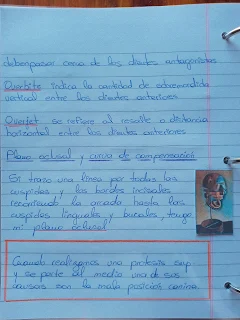 deben pasar cerca de los dientes antagonistas
Overbite indica la cantidad de sobremordida
vertical entre los dientes anteriores
Overjet se refiere al resalte o distancia
horizontal entre los dientes anteriores
Plano oclusal y curva de compensación
Si trazo una línea por todas las
cúspides y los bordes incisales
recorriendo la arcada hasta las
cúspides linguales y bucales, tengo
mi plano oclusal
Cuando realizamos una protesis sup
y se parte al medio una de sus
causas son la mala posición canina